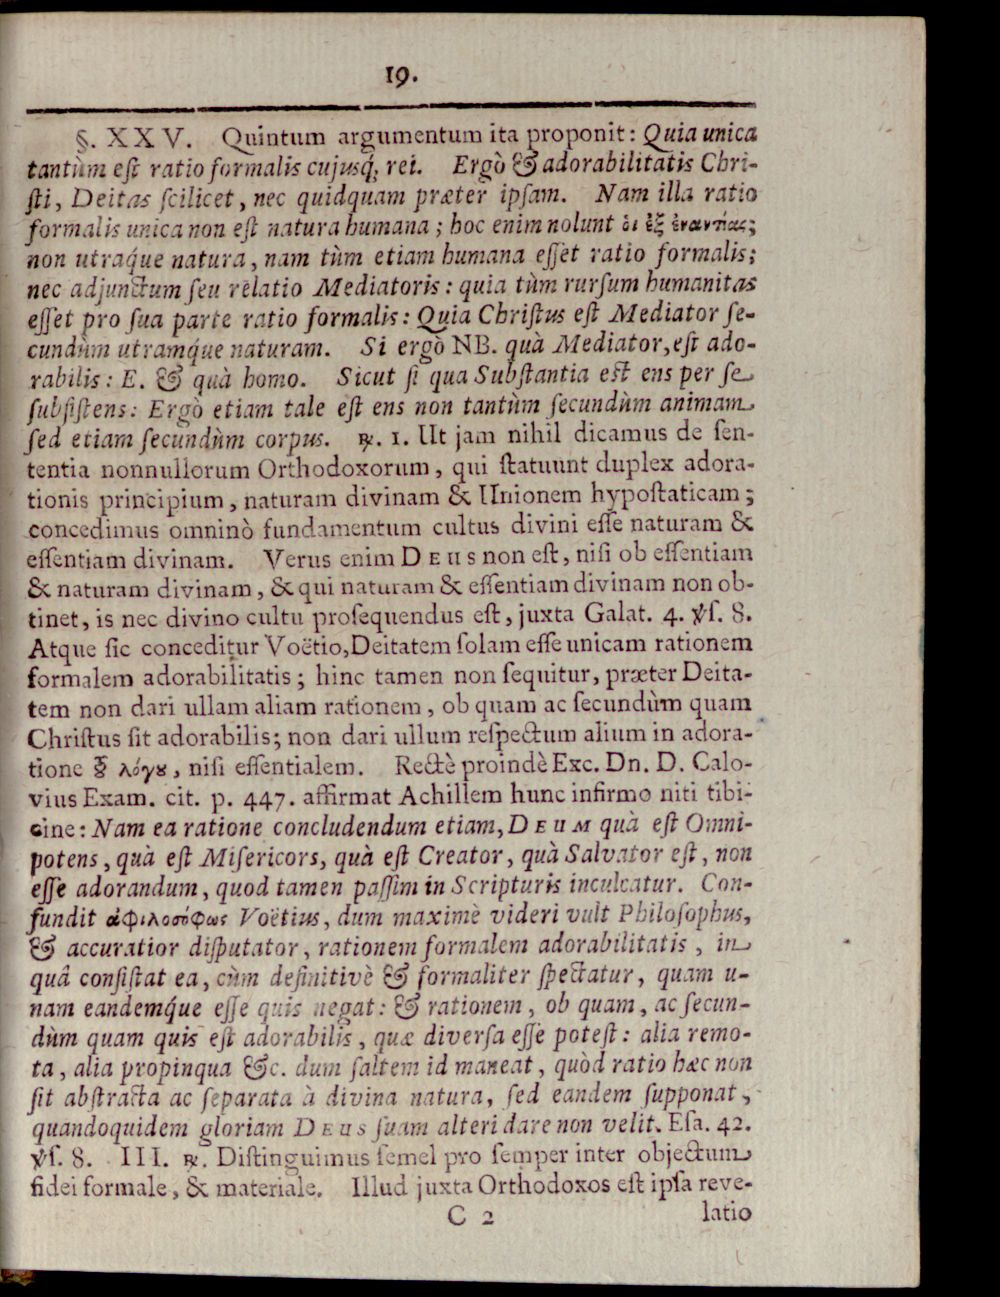 19.
§. XXV. Quintum argumentum ita proponit: Quia unica
tantùm eſt ratio formalis cujusq́; rei. Ergò & adorabilitatis Chri-
ſti, Deitas ſcilicet, nec quidquam præter ipſam. Nam illa ratio
formalis unica non eſt natura humana; hoc enim nolunt ὁι ἐξ ἐναντίας;
non utraq́ue natura, nam tùm etiam humana eſſet ratio formalis;
nec adjunctum ſeu relatio Mediatoris: quia tùm rurſum humanitas
eſſet pro ſua parte ratio formalis: Quia Chriſtus eſt Mediator ſe-
cundùm utramq́ue naturam. Si ergò NB. quà Mediator, eſt ado-
rabilis: E. & quà homo. Sicut ſi qua Subſtantia eſt ens per ſe
ſubſiſtens: Ergò etiam tale eſt ens non tantùm ſecundùm animam
ſed etiam ſecundùm corpus. ℞. 1. Ut jam nihil dicamus de ſen-
tentia nonnullorum Orthodoxorum, qui ſtatuunt duplex adora-
tionis principium, naturam divinam & Unionem hypoſtaticam;
concedimus omninò fundamentum cultus divini eſſe naturam &
eſſentiam divinam. Verus enim DEUS non eſt, niſi ob eſſentiam
& naturam divinam, & qui naturam & eſſentiam divinam non ob-
tinet, is nec divino cultu proſequendus eſt, juxta Galat. 4. ℣ſ. 8.
Atque ſic conceditur Voëtio, Deitatem ſolam eſſe unicam rationem
formalem adorabilitatis; hinc tamen non ſequitur, præter Deita-
tem non dari ullam aliam rationem, ob quam ac ſecundùm quam
Chriſtus ſit adorabilis; non dari ullum reſpectum alium in adora-
tione τ͂ȣ λόγȣ, niſi eſſentialem. Rectè proindè Exc. Dn. D. Calo-
vius Exam. cit. p. 447. affirmat Achillem hunc infirmo niti tibi-
cine: Nam ea ratione concludendum etiam, DEUM quà eſt Omni-
potens, quà eſt Miſericors, quà eſt Creator, quà Salvator eſt, non
eſſe adorandum, quod tamen paſſim in Scripturis inculcatur. Con-
fundit ἀφιλοσόφως Voëtius, dum maximè videri vult Philoſophus,
& accuratior diſputator, rationem formalem adorabilitatis, in
quâ conſiſtat ea, cùm definitivè & formaliter ſpectatur, quam u-
nam eandemq́ue eſſe quis negat: & rationem, ob quam, ac ſecun-
dùm quam quis eſt adorabilis, quæ diverſa eſſe poteſt: alia remo-
ta, alia propinqua &c. dum ſaltem id maneat, quòd ratio hæc non
ſit abſtracta ac ſeparata à divina natura, ſed eandem ſupponat,
quandoquidem gloriam DEUS ſuam alteri dare non velit. Eſa. 42.
℣ſ. 8. III. ℞. Diſtinguimus ſemel pro ſemper inter objectum
fidei formale, & materiale. Illud juxta Orthodoxos eſt ipſa reve-
C 2 latio